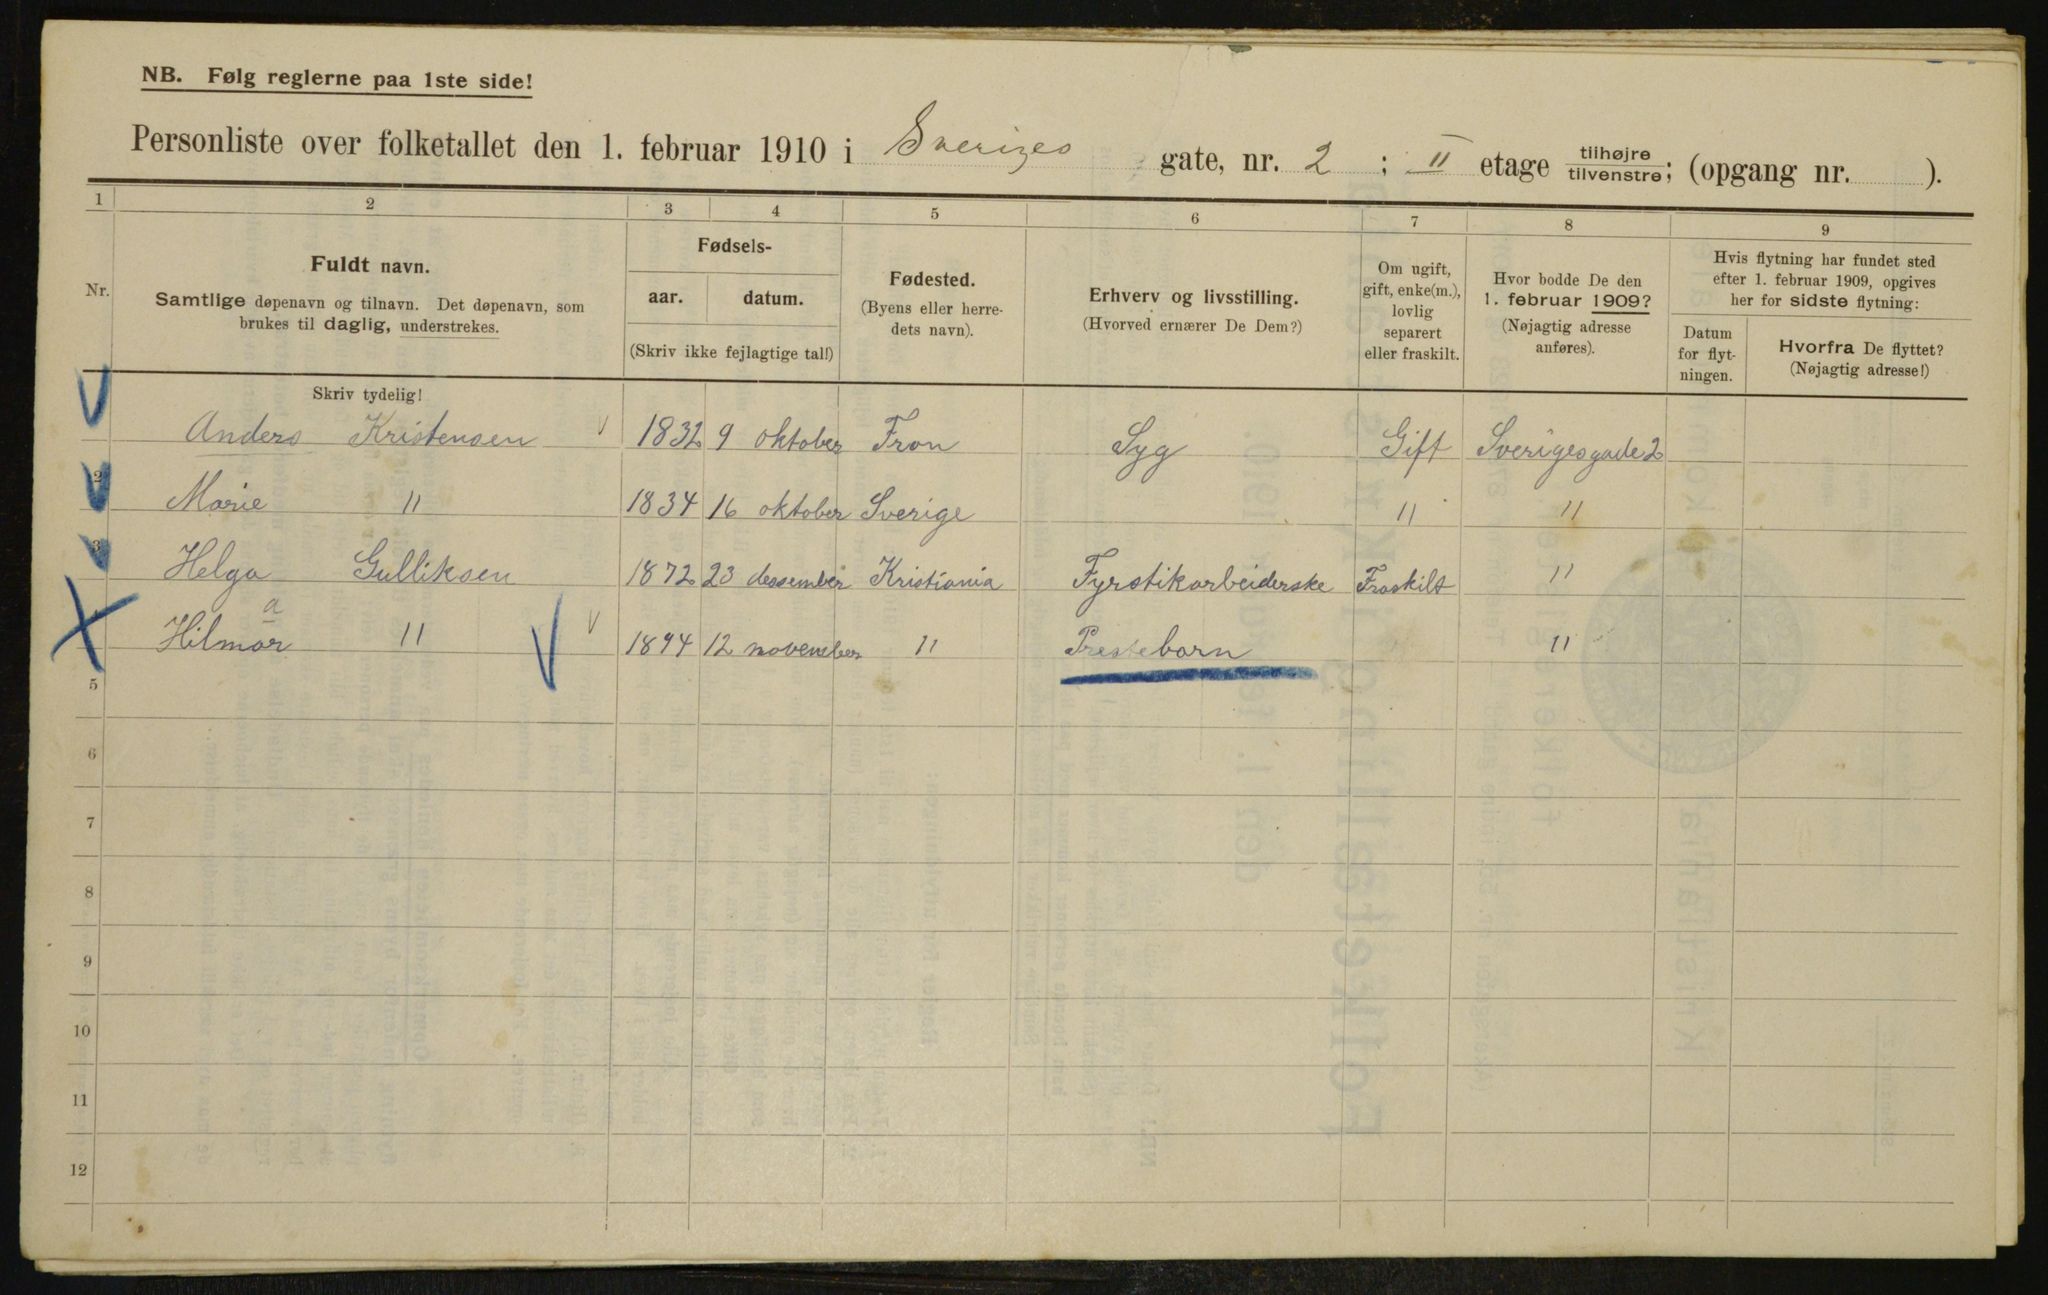 NB. Følg reglerne paa 1ste side!
Personliste over folketallet den 1. februar 1910 i Sveriges gate, nr. 2 ; II etage tilhøjre tilvenstre; (opgang nr. ).
1 2 3 4 5 6 7 8 9
Nr.
Fuldt navn.
Samtlige døpenavn og tilnavn. Det døpenavn, som
brukes til daglig, understrekes.
Skriv tydelig!
Fødsels-
aar. datum.
(Skriv ikke fejlagtige tal!)
Fødested.
(Byens eller herre-
dets navn).
Erhverv og livsstilling.
(Hvorved ernærer De Dem?)
Om ugift,
gift, enke(m.),
lovlig
separert
eller fraskilt.
Hvor bodde De den
1. februar 1909?
(Nøjagtig adresse
anføres).
Hvis flytning har fundet sted
efter 1. februar 1909, opgives
her for sidste flytning:
Datum
for flyt-
ningen.
Hvorfra De flyttet?
(Nøjagtig adresse!)
Anders Kristensen 1832 9 oktober Fron Syg Gift Sverigesgade 2
2 Marie " 1834 16 oktober Sverige " "
3 Helga Gulliksen 1872 23 dessember Kristiania Fyrstikarbeiderske Fraskilt "
a
Hilmar " 1894 12 november " Prestebarn "
5
6
7
8
9
10
11
12